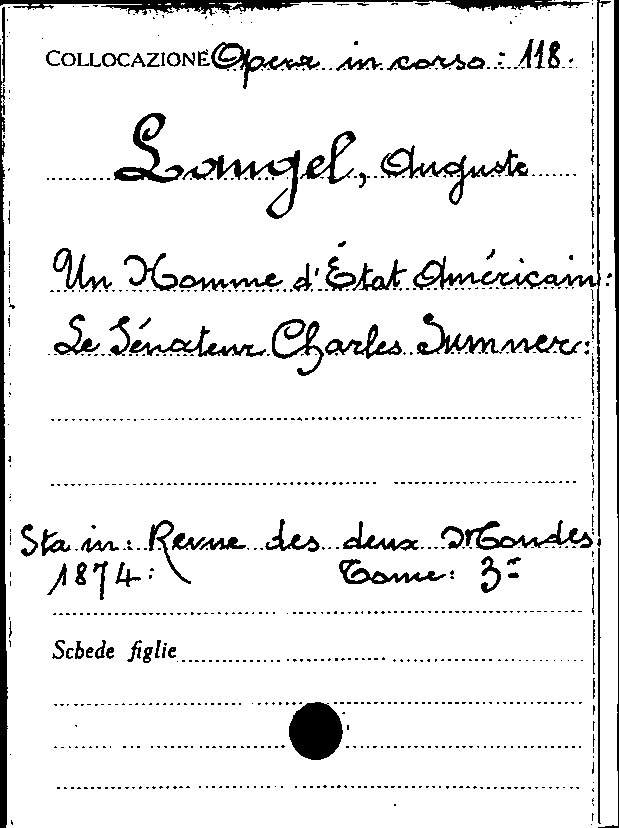 COLLOCAZIONE Opera in corso: 118.
Laugel, Auguste
Un Homme d'État Américain:
Le Sénateur Charles Sumner:
Sta in: Revue des deux Mondes
1874: Tome: 3=
Schede figlie